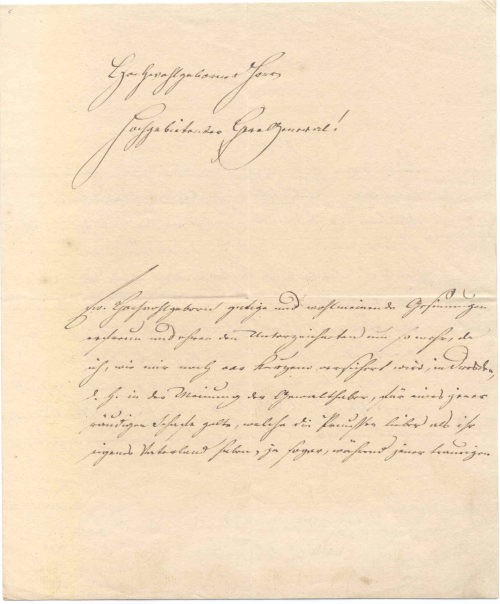 Hochwohlgeborner Herr
Hochgebietender Herr General!
Ew. Hochwohlgeboren gütige und wohlmeinende Gesinnungen
erfreun und ehren den Unterzeichneten um so mehr, da
ich, wie mir noch vor Kurzem versichert wird, in Dresden,
d. h. in der Meinung der Gewalthaber, für eines jener
räudigen Schafe gelte, welche die Preussen lieber als ihr
eigenes Vaterland haben, ja sogar, während jener traurigen